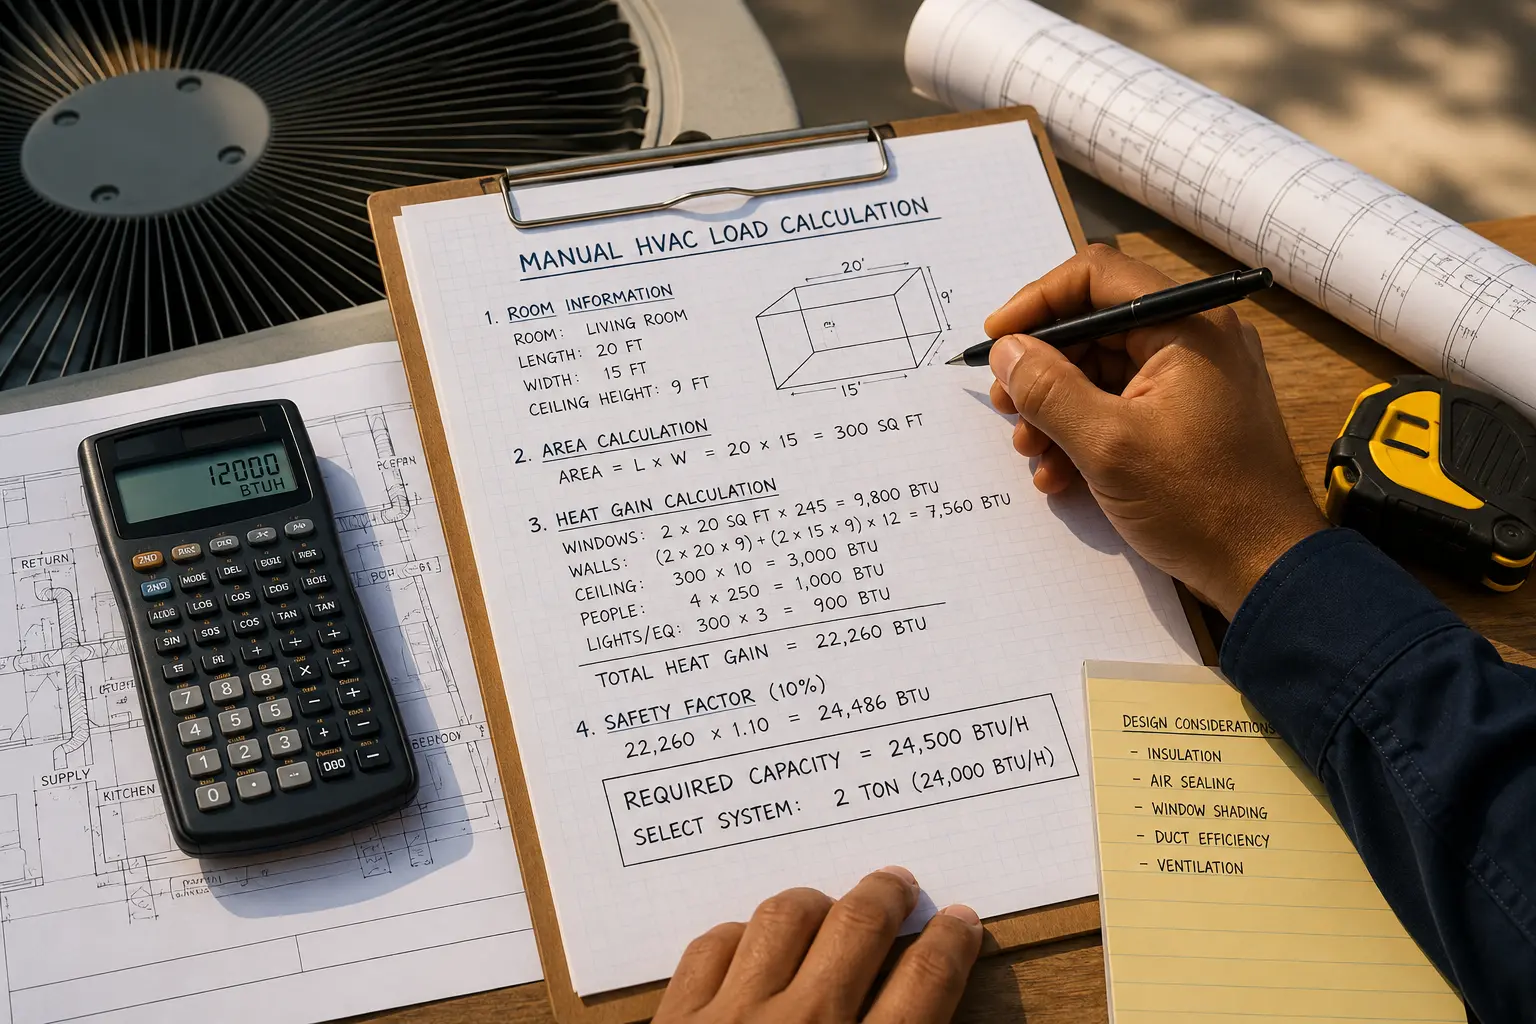 MANUAL HVAC LOAD CALCULATION
1. ROOM INFORMATION
ROOM: LIVING ROOM
LENGTH: 20 FT
WIDTH: 15 FT
CEILING HEIGHT: 9 FT
20'
9'
15'
2. AREA CALCULATION
AREA = L × W = 20 × 15 = 300 SQ FT
3. HEAT GAIN CALCULATION
WINDOWS: 2 × 20 SQ FT × 245 = 9,800 BTU
WALLS: (2 × 20 × 9) + (2 × 15 × 9) × 12 = 7,560 BTU
CEILING: 300 × 10 = 3,000 BTU
PEOPLE: 4 × 250 = 1,000 BTU
LIGHTS/EQ: 300 × 3 = 900 BTU
TOTAL HEAT GAIN = 22,260 BTU
4. SAFETY FACTOR (10%)
22,260 × 1.10 = 24,486 BTU
REQUIRED CAPACITY = 24,500 BTU/H
SELECT SYSTEM: 2 TON (24,000 BTU/H)
12000
BTUH
2ND
2ND MODE DEL
LOG COS COS
SIN COS TAN TAN
+ ÷ ÷
7 8 8 × ÷
4 5 5 − +
1 2 3 + −
0 . −
RETURN
SUPPLY
KITCHEN
DESIGN CONSIDERATIONS
- INSULATION
- AIR SEALING
- WINDOW SHADING
- DUCT EFFICIENCY
- VENTILATION